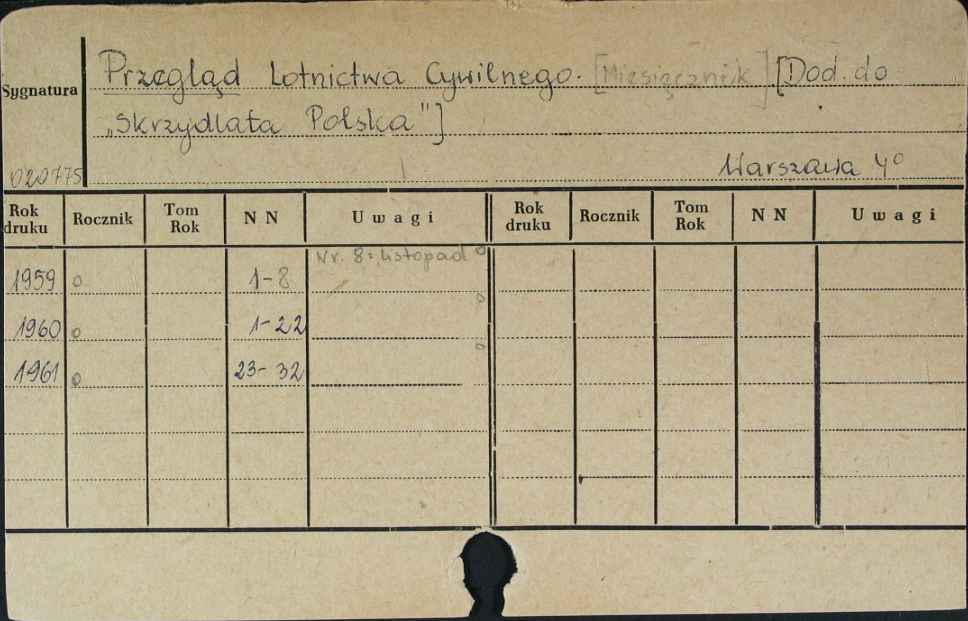 Przegląd Lotnictwa Cywilnego. [Miesięcznik] [Dod. do
Sygnatura
„Skrzydlata Polska"]
020775 Warszawa 4°
Rok druku Rocznik Tom Rok N N Uwagi Rok druku Rocznik Tom Rok N N Uwagi
Nr. 8: listopad o
1959 o 1-8
o
1960 o 1-22
o
1961 o 23-32